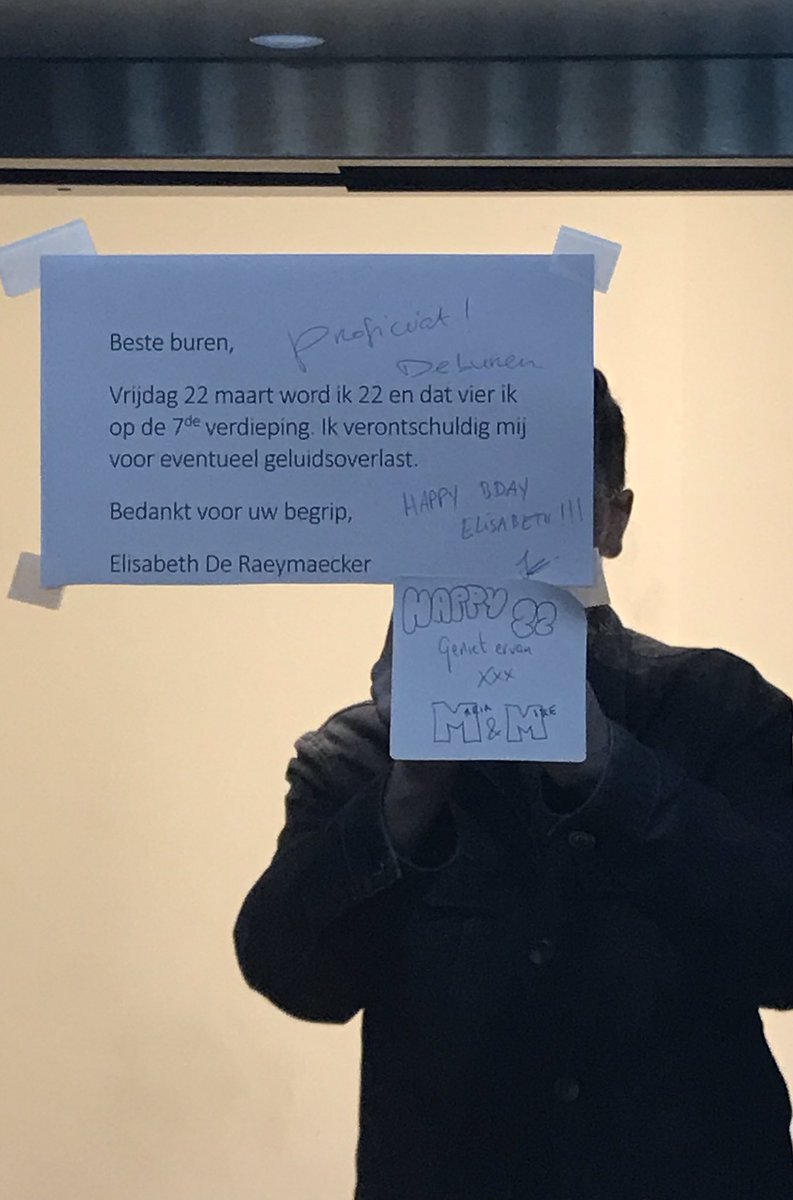 Beste buren,
Proficiat!
De buren
Vrijdag 22 maart word ik 22 en dat vier ik
op de 7de verdieping. Ik verontschuldig mij
voor eventueel geluidsoverlast.
Bedankt voor uw begrip,
HAPPY BDAY
ELISABETH!!!
Elisabeth De Raeymaecker
HAPPY 22
Geniet ervan
xxx
MARIA & MIKE